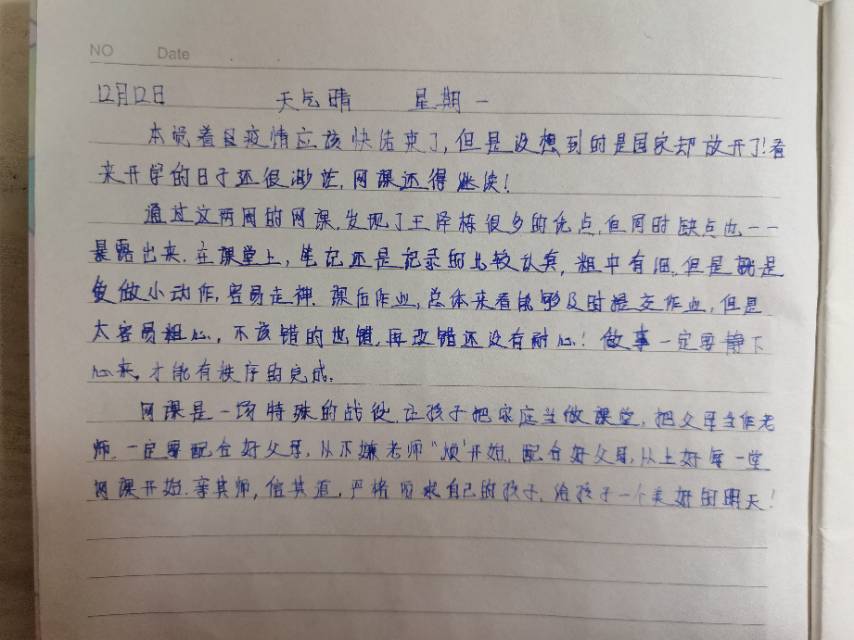 NO Date
12月12日 天气晴 星期一
本说着是疫情应该快结束了,但是没想到的是国家却放开了!看
来开学的日子还很渺茫,网课还得继续!
通过这两周的网课,发现了王泽栋很多的优点,但同时缺点也一一
暴露出来.在课堂上,笔记还是记录的比较认真,粗中有细,但是就是
爱做小动作,容易走神.课后作业,总体来看能够及时提交作业,但是
太容易粗心,不该错的也错,再改错还没有耐心!做事一定要静下
心来,才能有秩序的完成.
网课是一场特殊的战役.让孩子把家庭当做课堂,把父母当作老
师.一定要配合好父母,从不嫌老师"烦"开始.配合好父母,从上好每一堂
网课开始.亲其师,信其道,严格要求自己的孩子,给孩子一个美好的明天!